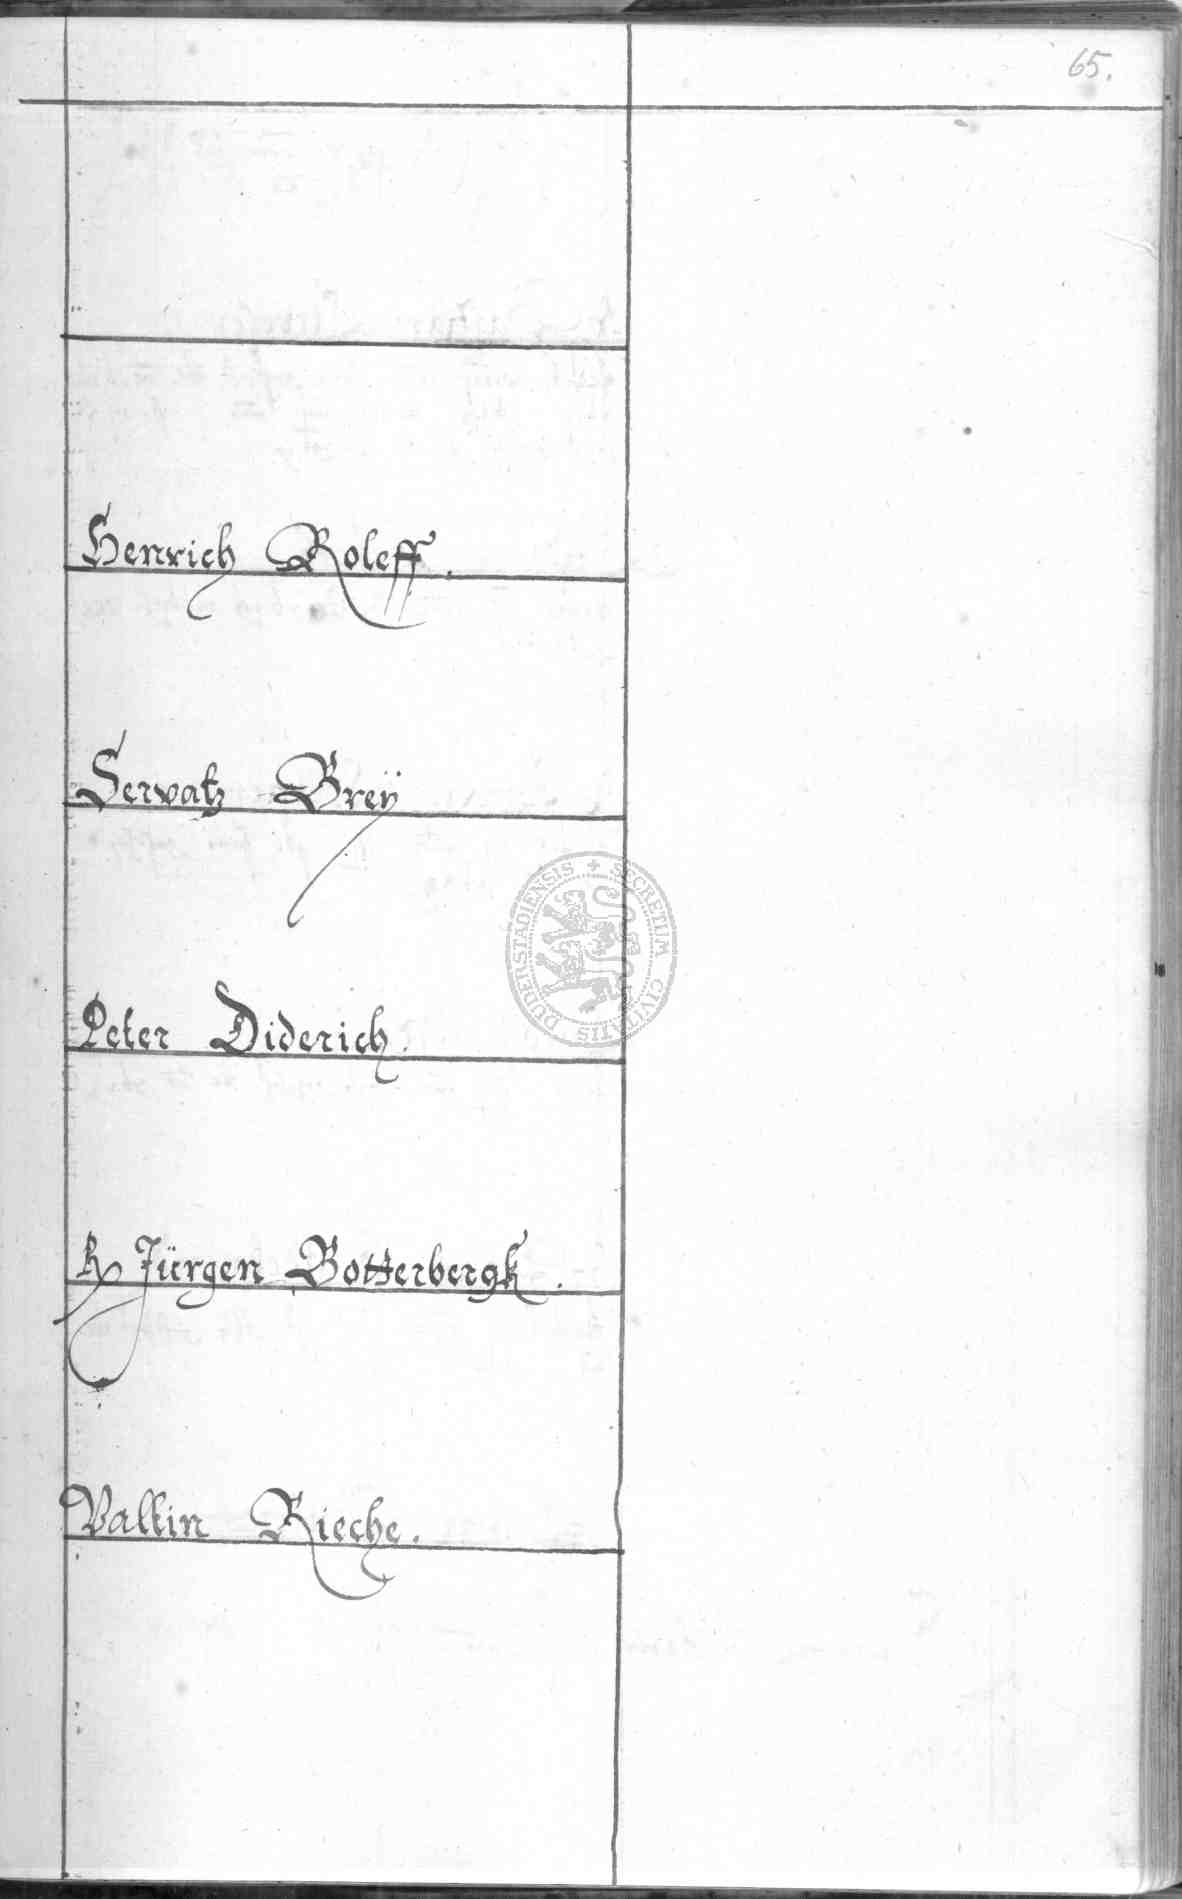 65.
Henrich Roleff.
Servatz Breÿ
Peter Diderich.
Jürgen Botterbergk.
Valtin Rieche.
SECRETUM CIVITATIS DUDERSTADIENSIS